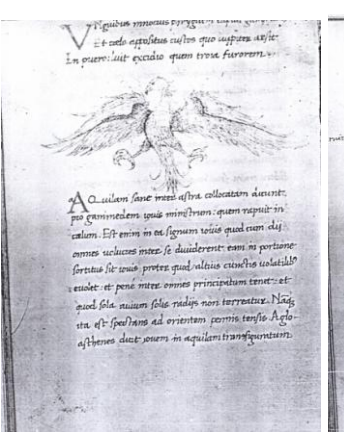 Unguibus innocuis
Et cœlo appositus custos quo iuppiter arsit
In puero: luit excidio quem troia furorem.
AQuilam sane inter astra collocatam dicunt:
pro ganimedem iouis ministrum: quem rapuit in
cælum. Est enim in ea signum iouis quod cum dij
omnes uolucres inter se diuiderent: eam in portione
sortitus sit iouis. preter quod altius cunctis uolatilib9
euolet: et pene inter omnes principatum tenet: et
quod sola auium solis radijs non terreatur. Naqʒ
ita est spectans ad orientem pennis tensis. Aglo-
asthenes dicit iouem in aquilam transfiguratum.